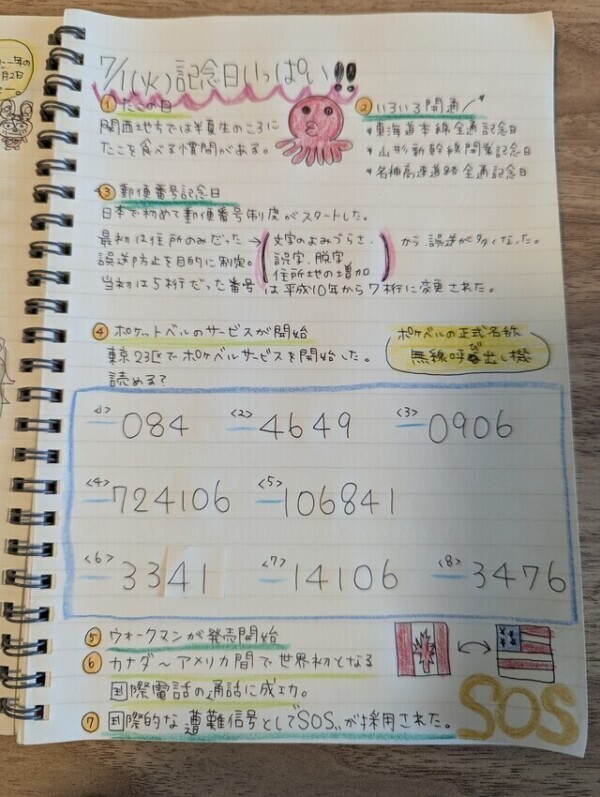 7/1(火)記念日いっぱい!!
① たこの日
関西地方では半夏生のころに
たこを食べる慣問がある。
② いろいろ開通
*東海道本線全通記念日
*山形新幹線開業記念日
*名神高速道路全通記念日
③ 郵便番号記念日
日本で初めて郵便番号制度がスタートした。
最初は住所のみだった→
誤送防止を目的に制定。
文字のよみづらさ、
誤字、脱字
住所地の増加
から誤送が多くなった。
当初は5桁だった番号は平成10年から7桁に変更された。
④ ポケットベルのサービスが開始
東京23区でポケベルサービスを開始した。
読める?
ポケベルの正式名称
無線呼び出し機
<1> 084
<2> 4649
<3> 0906
<4> 724106
<5> 106841
<6> 3341
<7> 14106
<8> 3476
⑤ ウォークマンが発売開始
⑥ カナダ〜アメリカ間で世界初となる
国際電話の通話に成功。
⑦ 国際的な遭難信号としてSOSが採用された。
SOS